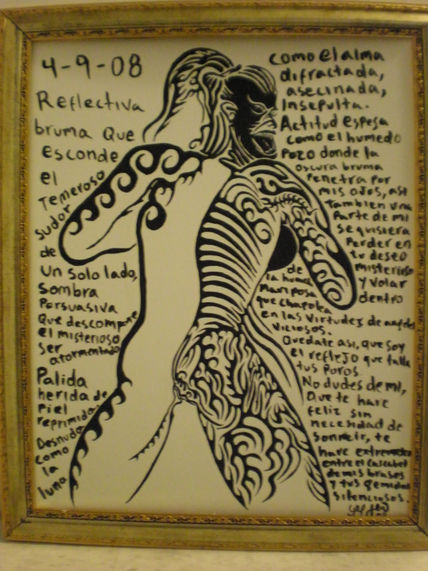 4-9-08
Reflectiva
bruma que
esconde
el
Temeroso
sudor
de
un solo lado,
sombra
Persuasiva
que descompone
el misterioso
ser
atormentado
Palida
herida de
Piel
reprimida
Desnuda
como
la
luna
como el alma
difractada,
asecinada,
insepulta.
Actitud espesa
como el humedo
Pozo donde la
oscura bruma
Penetra por
mis ojos, asi
Tambien una
Parte de mi
se quisiera
Perder en
tu deseo
misterioso
y volar
dentro
de
la
mariposa
que chapotea
en las virtudes de
viciosos.
Quedate asi, que soy
el reflejo que talla
tus Poros
No dudes de mi,
Que te hare
feliz sin
necesidad de
sonreir, te
hare
entre el cascabel
de mis brasos
y tus gemidos
silenciosos.